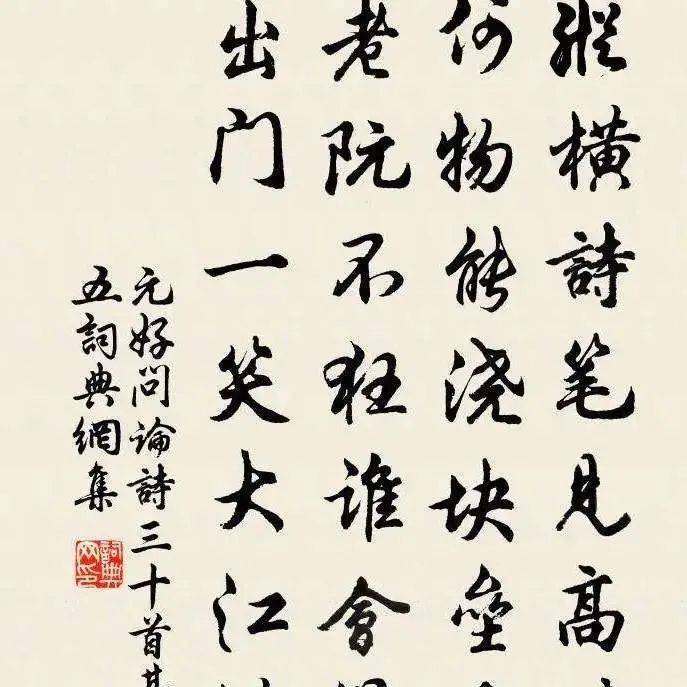 縱橫詩笔見高
何物能浇块壘
老阮不狂谁會
出門一笑大江
元好问论詩三十首其
五詞典網集
詞典网印